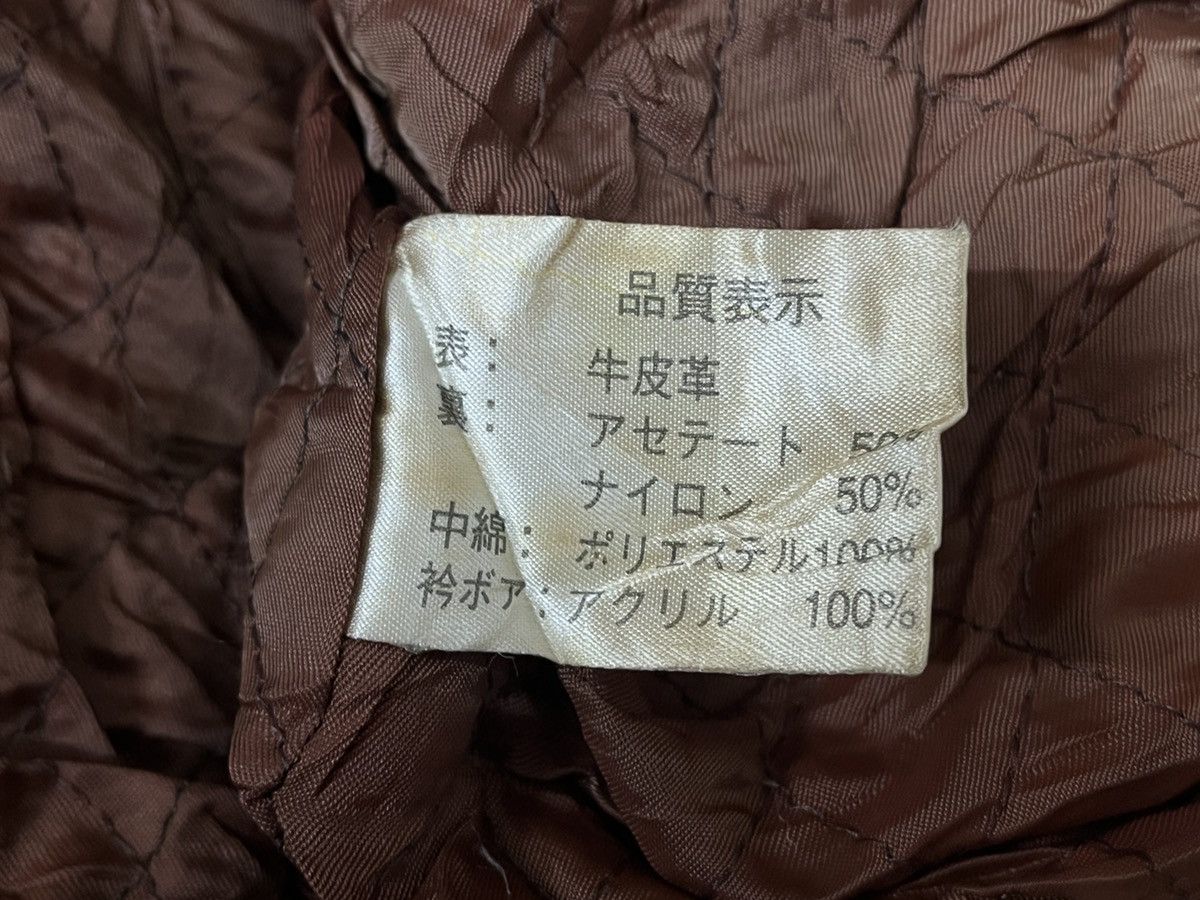 品質表示
表: 牛皮革
裏: アセテート 50%
ナイロン 50%
中綿: ポリエステル100%
衿ボア: アクリル 100%